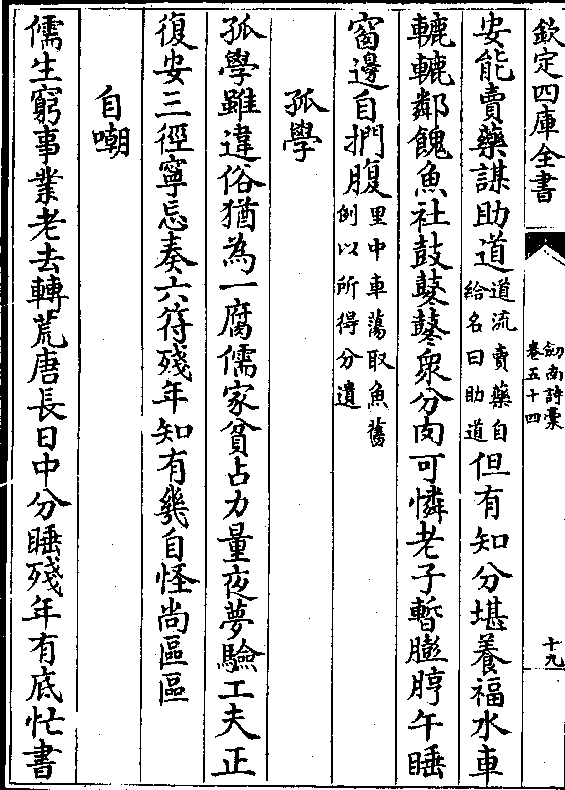 欽定四庫全書
劔南詩稾
卷五十四
十九
安能賣藥謀助道道流賣藥自給名曰助道但有知分堪養福水車
轆轆鄰餽魚社鼓鼕鼕衆分肉可憐老子暫膨脝午睡
窗邊自捫腹里中車蕩取魚舊例以所得分遺
孤學
孤學雖違俗猶為一腐儒家貧占力量夜夢驗工夫正
復安三徑寧忘奏六符殘年知有幾自怪尚區區
自嘲
儒生窮事業老去轉荒唐長日中分睡殘年有底忙書